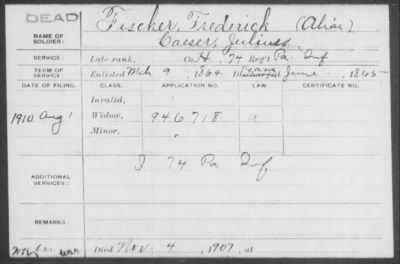 DEAD
Fischer, Frederick (Alias)
NAME OF SOLDIER: Caeser, Julius
SERVICE: Late rank, Co. H, 77 Reg't Pa. Inf
TERM OF SERVICE: Enlisted Mch 9, 1864 Discharged Trans June, 1865
DATE OF FILING. CLASS. APPLICATION NO. CERTIFICATE NO.
Invalid,
1910 Aug 1 Widow, 946718 a
Minor, "
ADDITIONAL SERVICES: I 74 Pa Inf
REMARKS:
war Died Nov 4, 1907, at